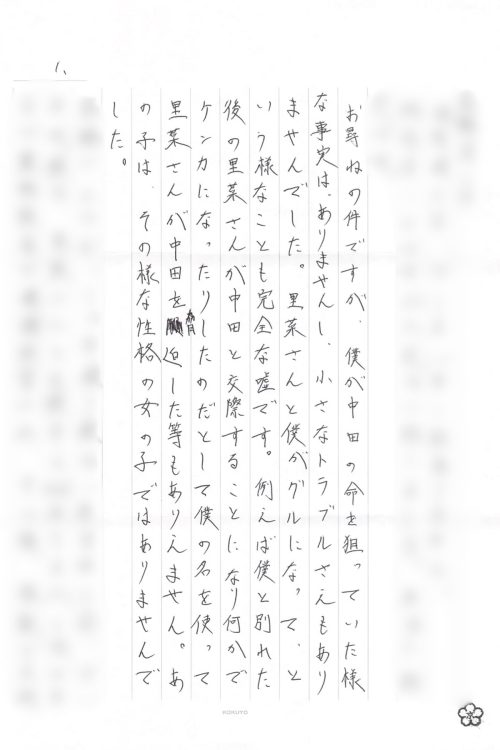 1、
お尋ねの件ですが、僕が中田の命を狙っていた様
な事実は、ありませんし、小さなトラブルさえもあり
ませんでした。里菜さんと僕がグルになって、と
いう様なことも完全な嘘です。例えば僕と別れた
後の里菜さんが中田と交際することになり何かで
ケンカになったりしたのだとして僕の名を使って
里菜さんが中田を脅迫した等もありえません。あ
の子は、その様な性格の女の子ではありませんで
した。
KOKUYO